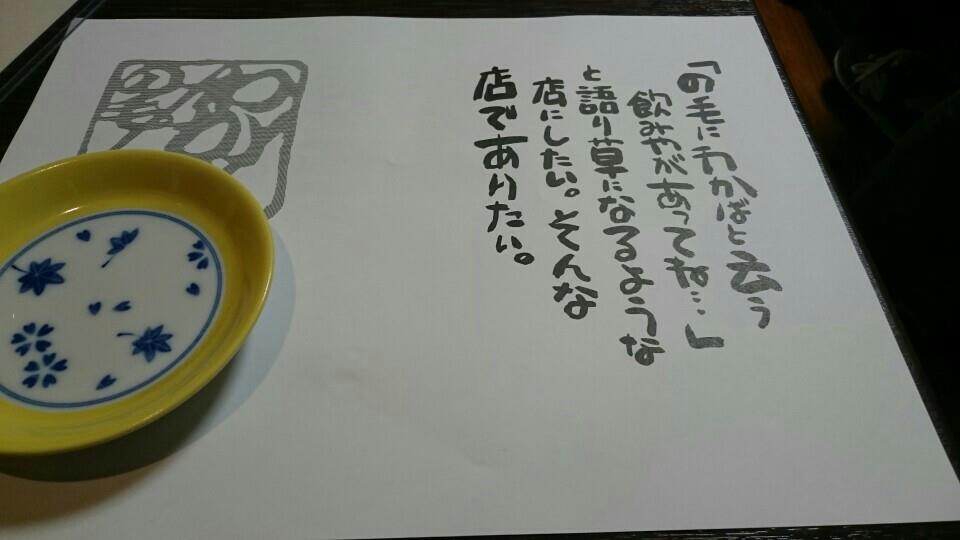 「の毛にわかばと云う
飲みやがあってね…」
と語り草になるような
店にしたい。そんな
店でありたい。